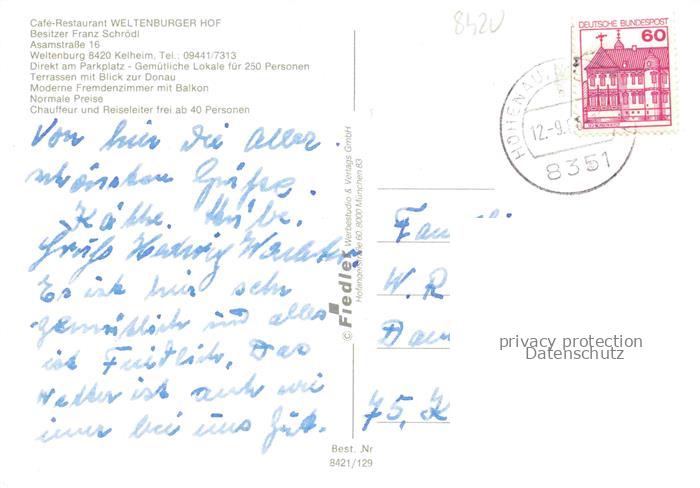 Café-Restaurant WELTENBURGER HOF
Besitzer Franz Schrödl
Asamstraße 16
Weltenburg 8420 Kelheim, Tel.: 09441/7313
Direkt am Parkplatz - Gemütliche Lokale für 250 Personen
Terrassen mit Blick zur Donau
Moderne Fremdenzimmer mit Balkon
Normale Preise
Chauffeur und Reiseleiter frei ab 40 Personen
Von hir die aller
schönsten Grüße
Käthe.
Gruß Hedwig
Es ist hir sehr
gemütlich und alles
ist Fridlich. Das
Wetter ist auch wie
imer bei uns Gut.
© Fiedler Werbestudio & Verlags GmbH
Hofangerstraße 60 8000 München 83
Best. Nr
8421/129
8420
DEUTSCHE BUNDESPOST
60
HOHENAU,
12.-9.
8351
Fam
W. R
Dam
75, K
privacy protection
Datenschutz